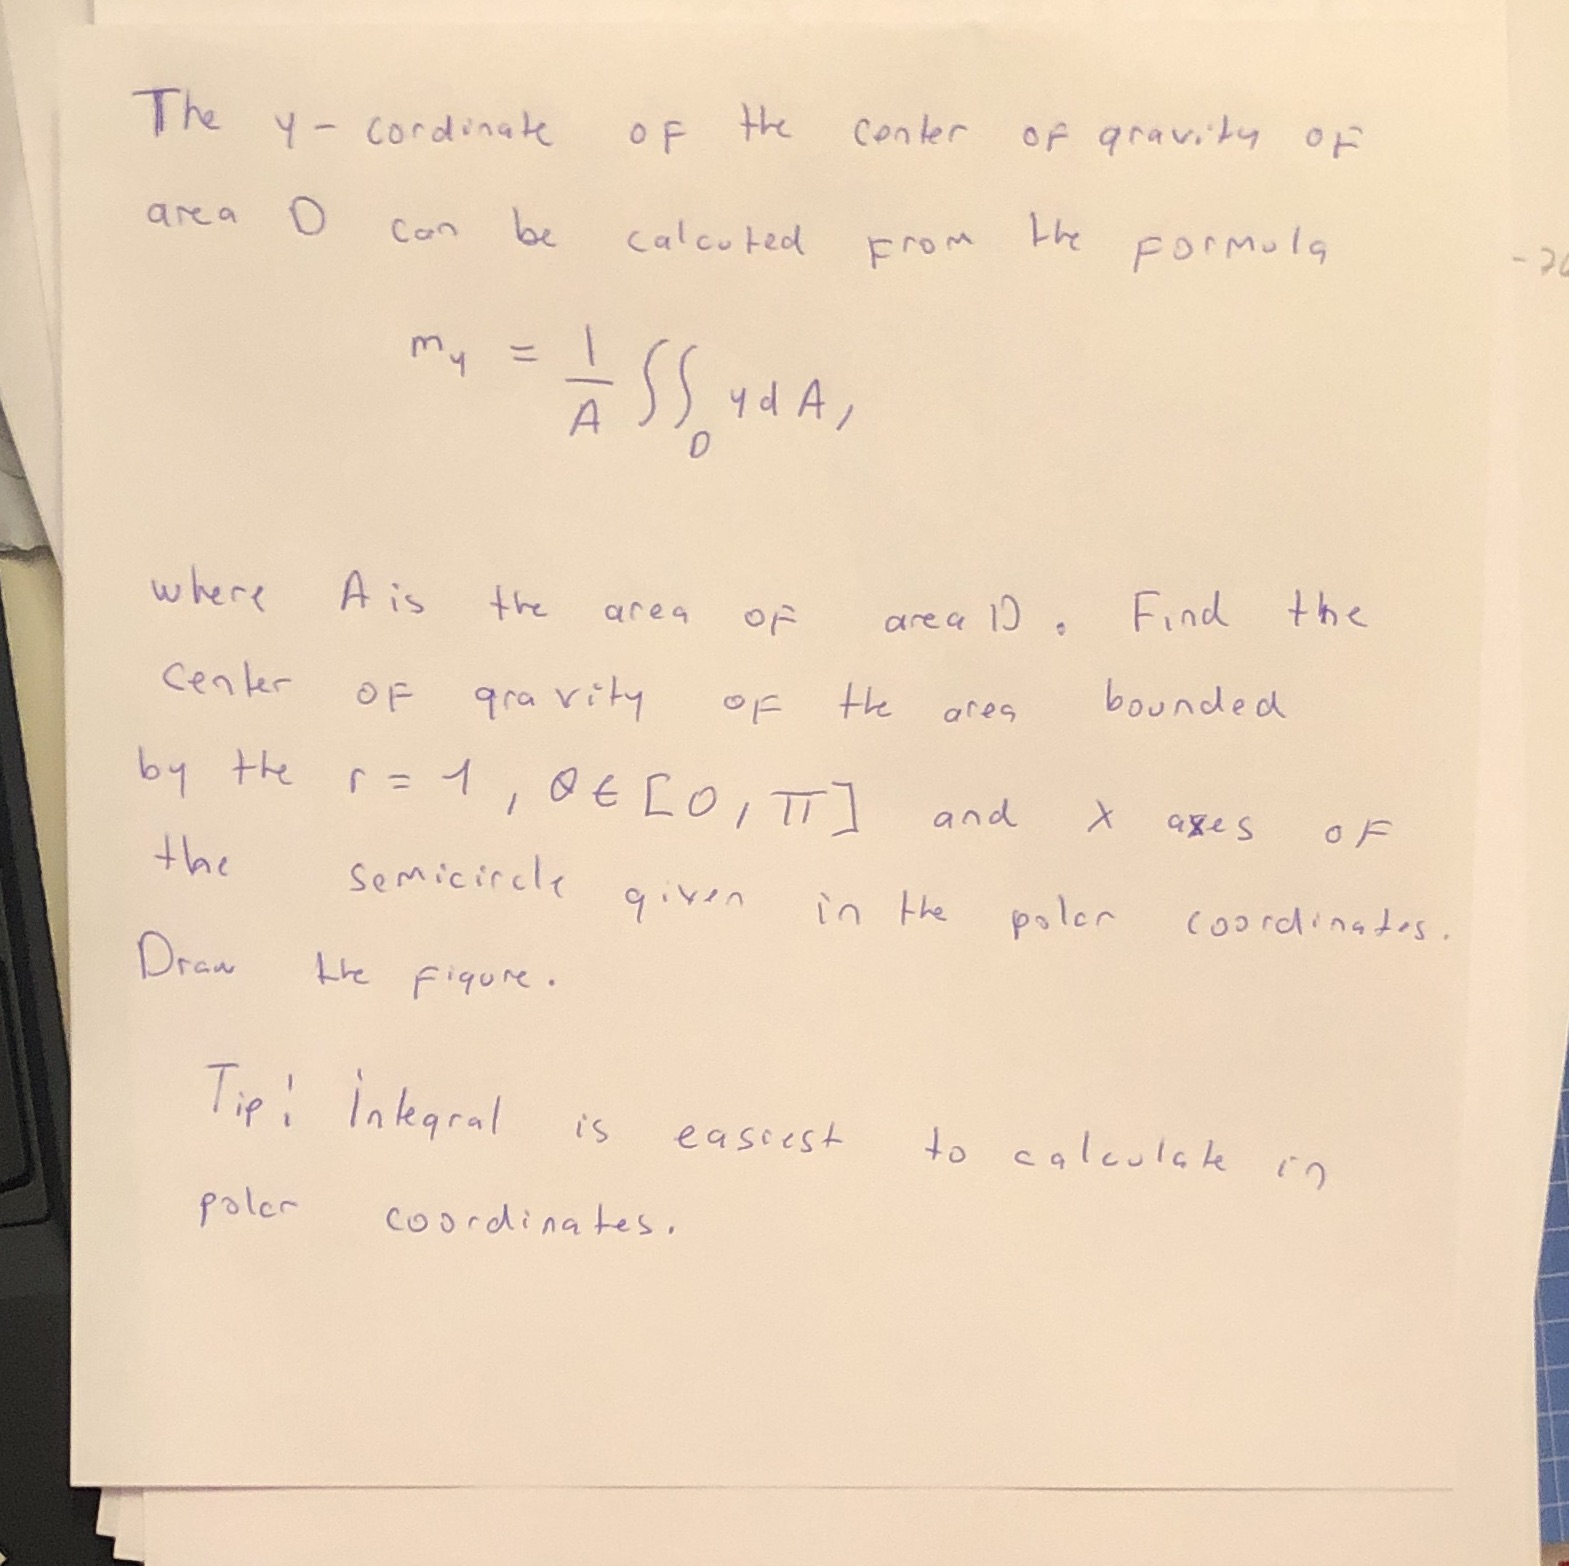 The y-cordinate of the center of gravity of
area D can be calcuted from the formula
m_y = 1/A ∬_D y dA,
where A is the area of area D. Find the
center of gravity of the area bounded
by the r = 1, θ ∈ [0, π] and x axes of
the semicircle given in the polar coordinates.
Draw the figure.
Tip: Integral is easiest to calculate in
polar coordinates.